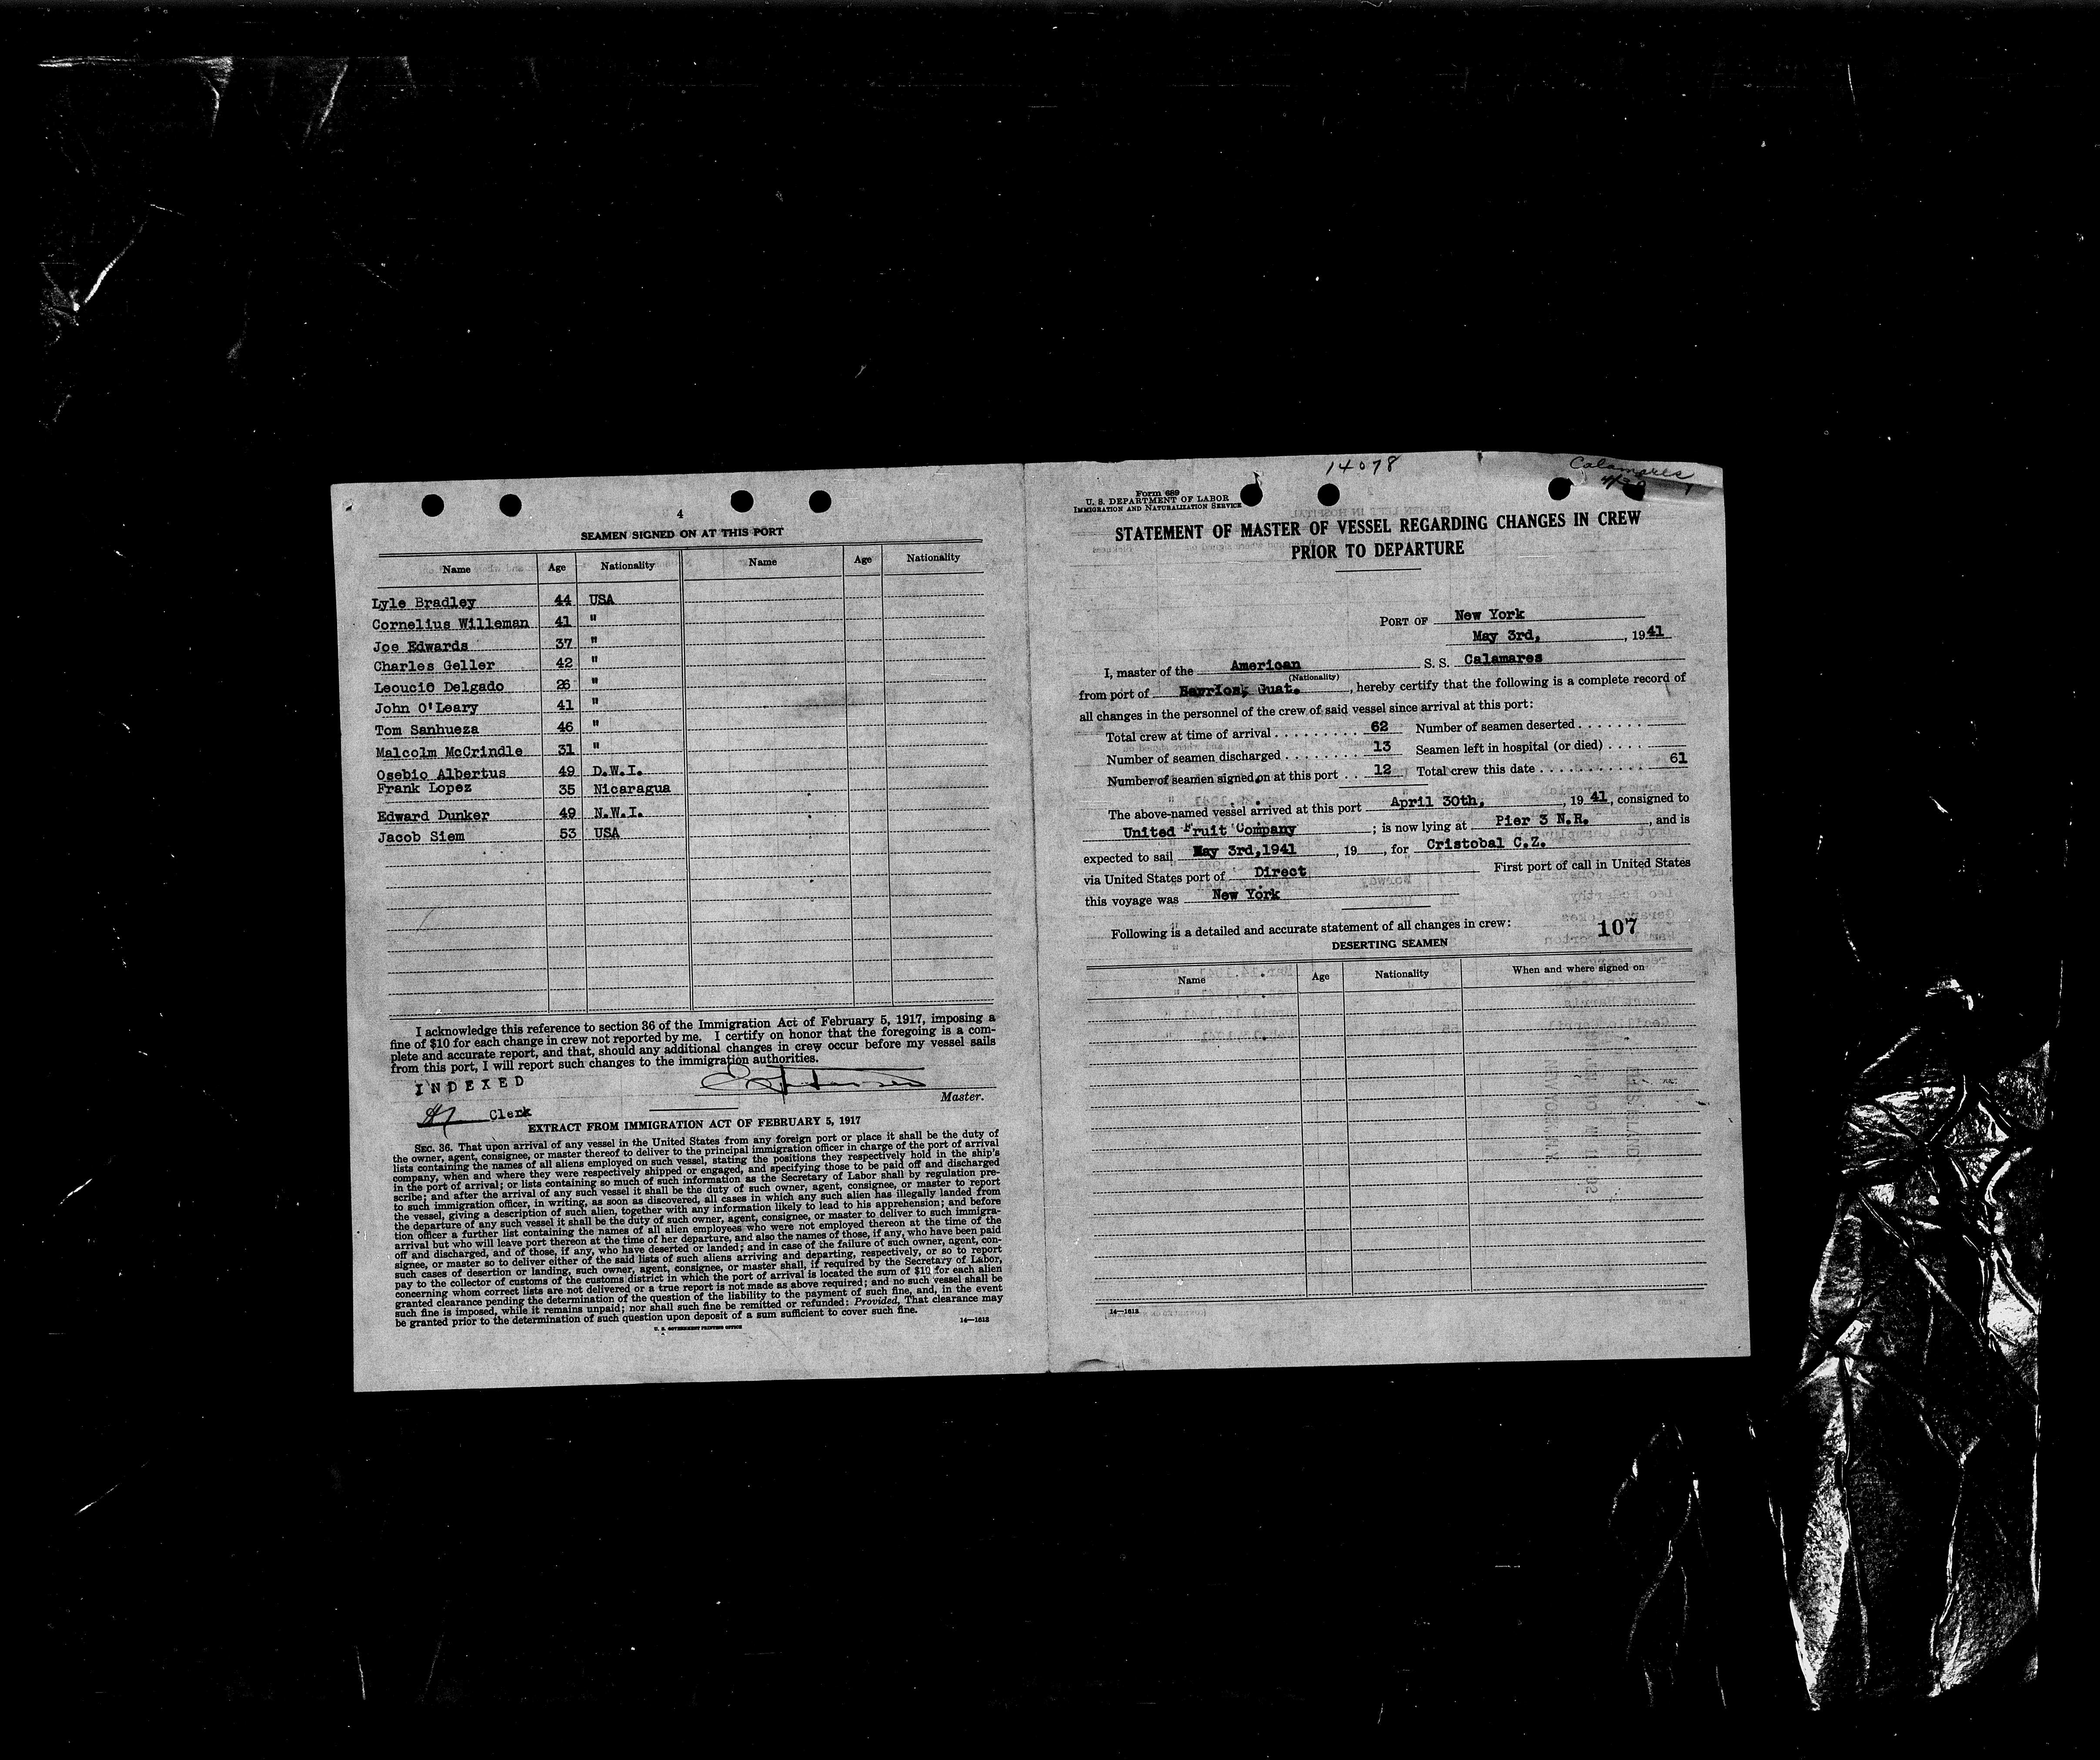 4
SEAMEN SIGNED ON AT THIS PORT
Name Age Nationality Name Age Nationality
Lyle Bradley 44 USA
Cornelius Willeman 41 "
Joe Edwards 37 "
Charles Geller 42 "
Leoucio Delgado 26 "
John O'Leary 41 "
Tom Sanhueza 46 "
Malcolm McCrindle 31 "
Osebio Albertus 49 D.W.I.
Frank Lopez 35 Nicaragua
Edward Dunker 49 N.W.I.
Jacob Siem 53 USA
I acknowledge this reference to section 36 of the Immigration Act of February 5, 1917, imposing a
fine of $10 for each change in crew not reported by me. I certify on honor that the foregoing is a com-
plete and accurate report, and that, should any additional changes in crew occur before my vessel sails
from this port, I will report such changes to the immigration authorities.
INDEXED
Master.
Clerk
EXTRACT FROM IMMIGRATION ACT OF FEBRUARY 5, 1917
SEC. 36. That upon arrival of any vessel in the United States from any foreign port or place it shall be the duty of
the owner, agent, consignee, or master thereof to deliver to the principal immigration officer in charge of the port of arrival
lists containing the names of all aliens employed on such vessel, stating the positions they respectively hold in the ship's
company, when and where they were respectively shipped or engaged, and specifying those to be paid off and discharged
in the port of arrival; or lists containing so much of such information as the Secretary of Labor shall by regulation pre-
scribe; and after the arrival of any such vessel it shall be the duty of such owner, agent, consignee, or master to report
to such immigration officer, in writing, as soon as discovered, all cases in which any such alien has illegally landed from
the vessel, giving a description of such alien, together with any information likely to lead to his apprehension; and before
the departure of any such vessel it shall be the duty of such owner, agent, consignee, or master to deliver to such immigra-
tion officer a further list containing the names of all alien employees who were not employed thereon at the time of the
arrival but who will leave port thereon at the time of her departure, and also the names of those, if any, who have been paid
off and discharged, and of those, if any, who have deserted or landed; and in case of the failure of such owner, agent, con-
signee, or master so to deliver either of the said lists of such aliens arriving and departing, respectively, or so to report
such cases of desertion or landing, such owner, agent, consignee, or master shall, if required by the Secretary of Labor,
pay to the collector of customs of the customs district in which the port of arrival is located the sum of $10 for each alien
concerning whom correct lists are not delivered or a true report is not made as above required; and no such vessel shall be
granted clearance pending the determination of the question of the liability to the payment of such fine, and, in the event
such fine is imposed, while it remains unpaid; nor shall such fine be remitted or refunded: Provided, That clearance may
be granted prior to the determination of such question upon deposit of a sum sufficient to cover such fine.
U. S. GOVERNMENT PRINTING OFFICE 14—1618
14078
Calamares
Form 689
U. S. DEPARTMENT OF LABOR
IMMIGRATION AND NATURALIZATION SERVICE
STATEMENT OF MASTER OF VESSEL REGARDING CHANGES IN CREW
PRIOR TO DEPARTURE
PORT OF New York
May 3rd, , 1941
I, master of the American S. S. Calamares
(Nationality)
from port of Barrios, Guat. , hereby certify that the following is a complete record of
all changes in the personnel of the crew of said vessel since arrival at this port:
Total crew at time of arrival . . . . . . . . . 62 Number of seamen deserted . . . . . . .
Number of seamen discharged . . . . . . . . 13 Seamen left in hospital (or died) . . . .
Number of seamen signed on at this port . . 12 Total crew this date . . . . . . . . . . . 61
The above-named vessel arrived at this port April 30th, , 1941, consigned to
United Fruit Company ; is now lying at Pier 3 N.R. , and is
expected to sail May 3rd,1941 , 19 , for Cristobal C.Z.
via United States port of Direct First port of call in United States
this voyage was New York
Following is a detailed and accurate statement of all changes in crew:
107
DESERTING SEAMEN
Name Age Nationality When and where signed on
14—1618